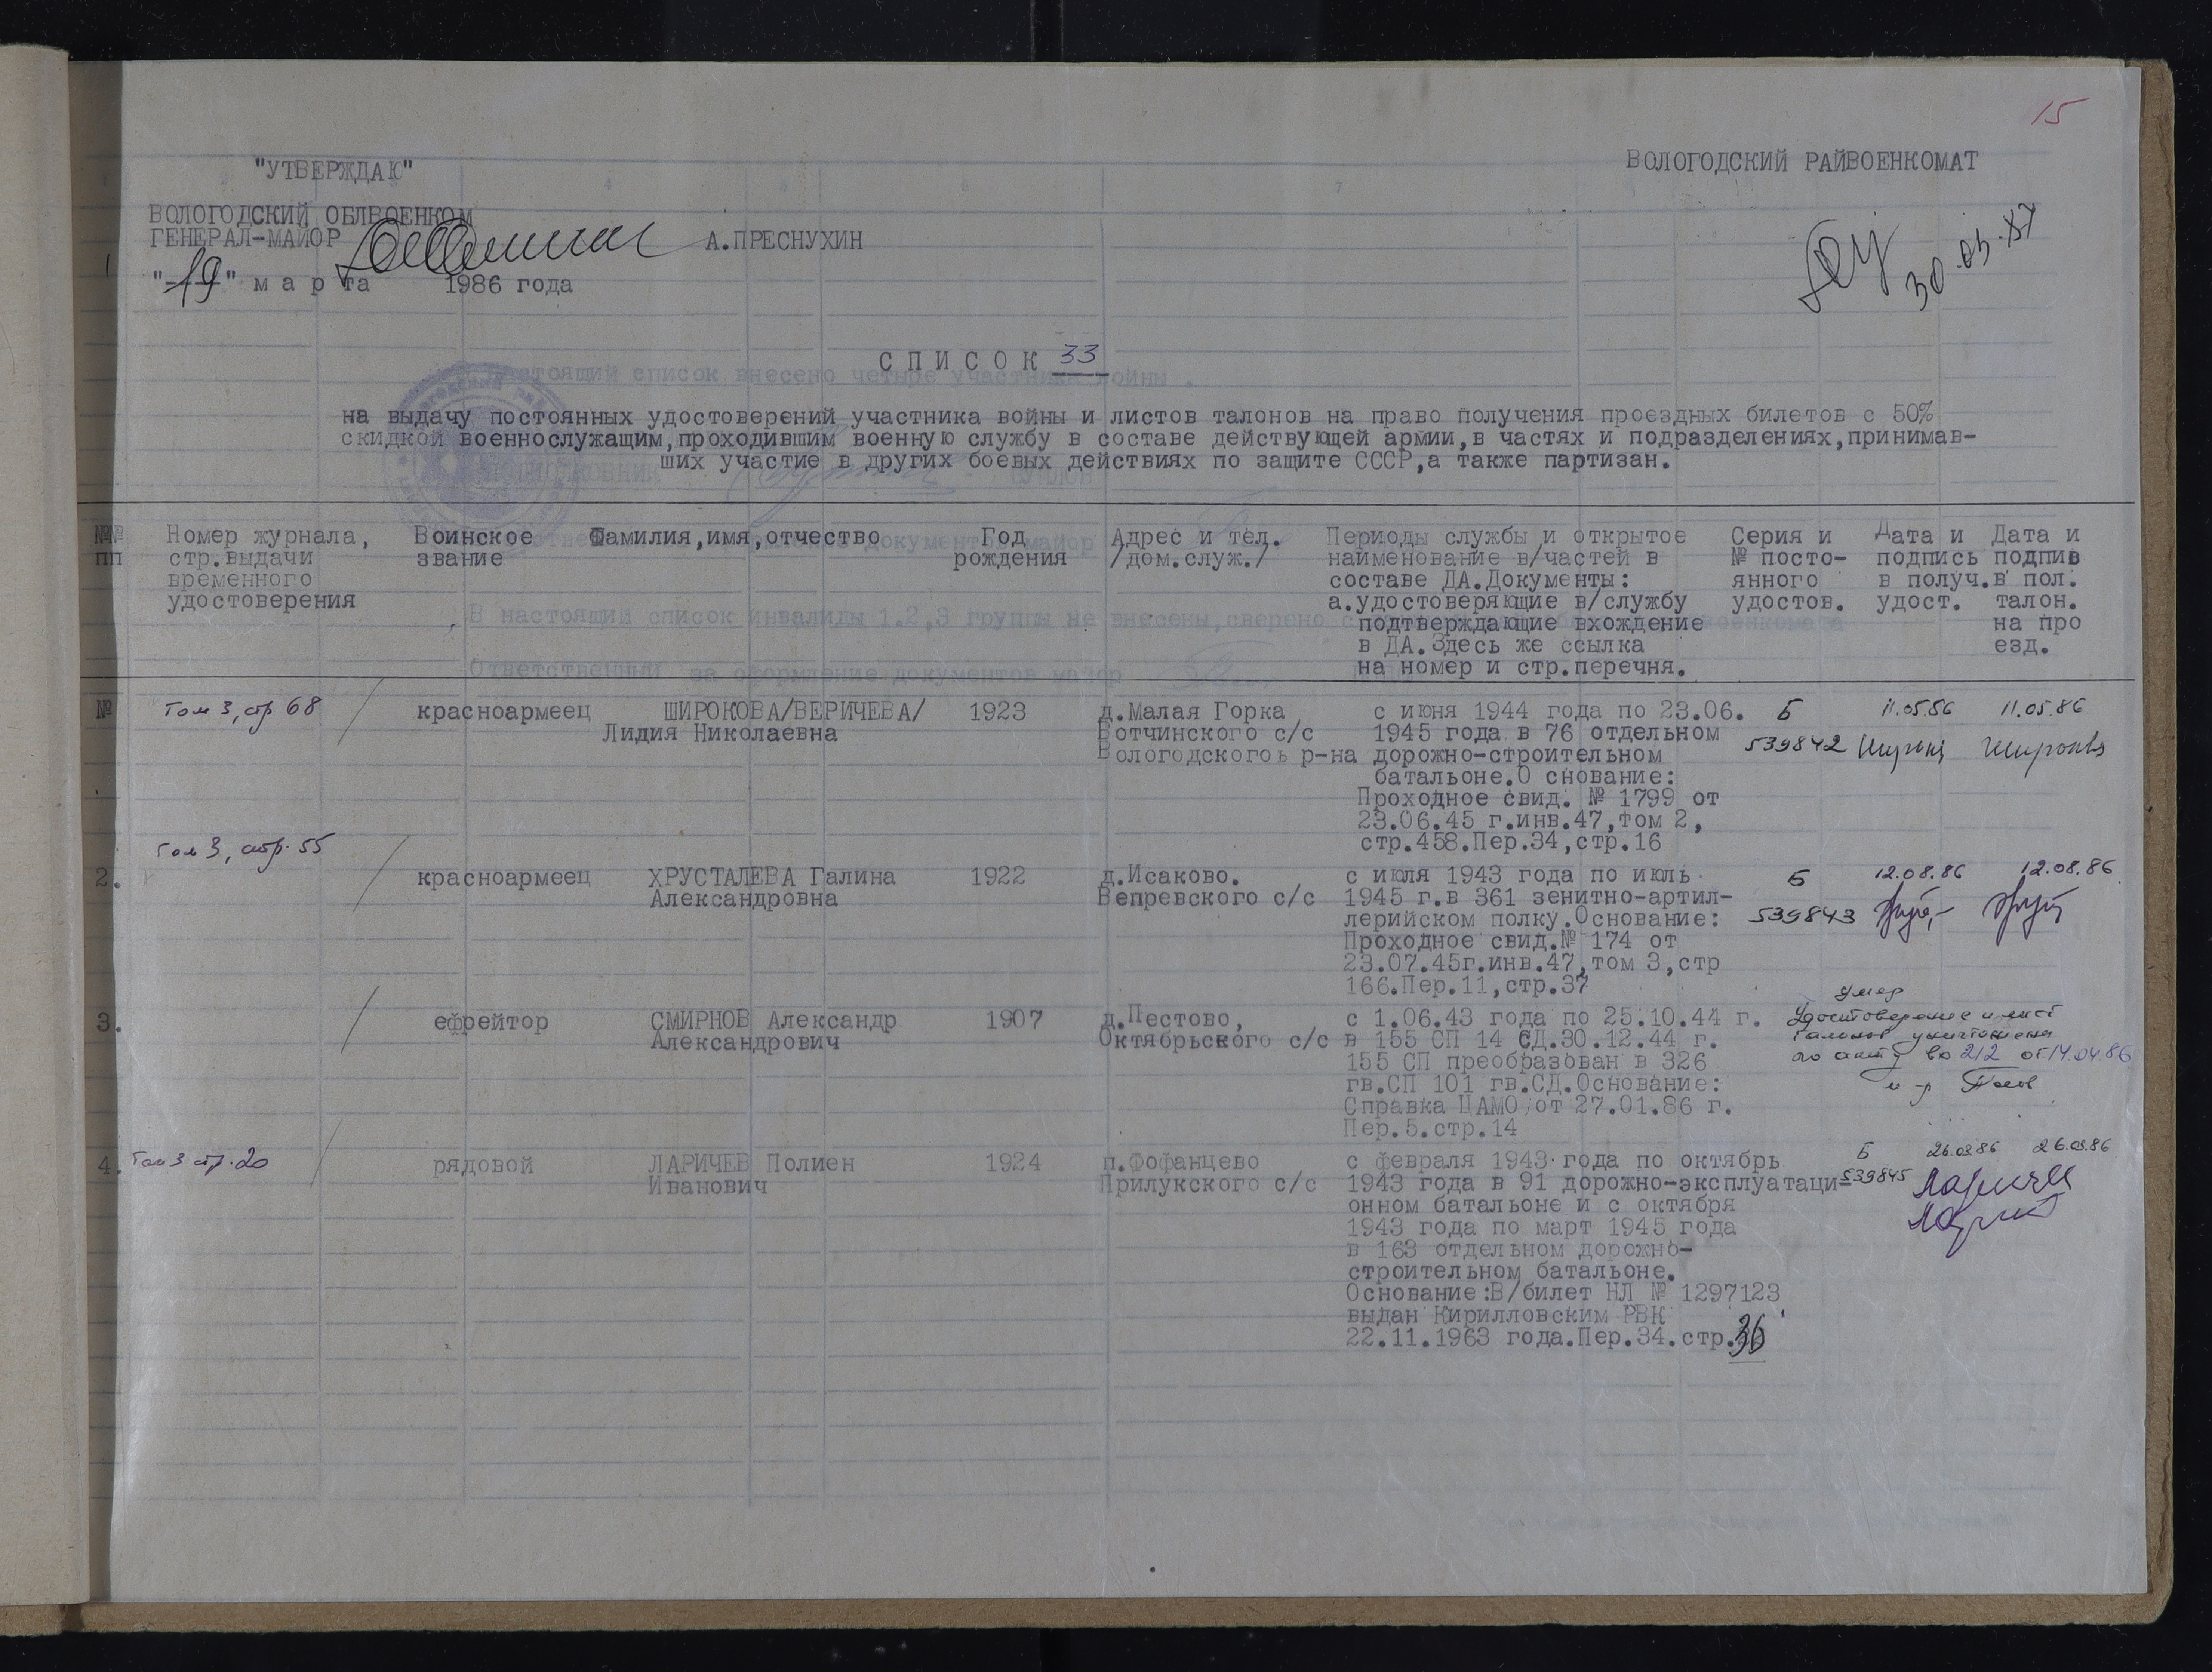 15
"УТВЕРЖДАЮ"
ВОЛОГОДСКИЙ РАЙВОЕНКОМАТ
ВОЛОГОДСКИЙ ОБЛВОЕНКОМ
ГЕНЕРАЛ-МАЙОР А.ПРЕСНУХИН
"19" м а р та 1986 года
30.03.87
С П И С О К 33
на выдачу постоянных удостоверений участника войны и листов талонов на право получения проездных билетов с 50%
скидкой военнослужащим,проходившим военную службу в составе действующей армии,в частях и подразделениях,принимав-
ших участие в других боевых действиях по защите СССР,а также партизан.
№№
пп
Номер журнала,
стр.выдачи
временного
удостоверения
Воинское
звание
Фамилия,имя,отчество
Год
рождения
Адрес и тел.
/дом.служ./
Периоды службы и открытое
наименование в/частей в
составе ДА.Документы:
а.удостоверяющие в/службу
подтверждающие вхождение
в ДА.Здесь же ссылка
на номер и стр.перечня.
Серия и
№ посто-
янного
удостов.
Дата и
подпись
в получ.
удост.
Дата и
подпив
в пол.
талон.
на про
езд.
№
Том 3, стр 68
красноармеец
ШИРОКОВА/ВЕРИЧЕВА/
Лидия Николаевна
1923
д.Малая Горка
Вотчинского с/с
Вологодскогоь р-на
с июня 1944 года по 23.06.
1945 года в 76 отдельном
дорожно-строительном
батальоне.О снование:
Проходное свид. № 1799 от
23.06.45 г.инв.47,том 2,
стр.458.Пер.34,стр.16
Б
539842
11.05.86
11.05.86
Широкова
Том 3, стр. 55
2.
красноармеец
ХРУСТАЛЕВА Галина
Александровна
1922
д.Исаково.
Вепревского с/с
с июля 1943 года по июль
1945 г.в 361 зенитно-артил-
лерийском полку.Основание:
Проходное свид.№ 174 от
23.07.45г.инв.47,том 3,стр
166.Пер.11,стр.37
Б
539843
12.08.86
12.08.86
3.
ефрейтор
СМИРНОВ Александр
Александрович
1907
д.Пестово,
Октябрьского с/с
с 1.06.43 года по 25.10.44 г.
в 155 СП 14 СД.30.12.44 г.
155 СП преобразован в 326
гв.СП 101 гв.СД.Основание:
Справка ЦАМО от 27.01.86 г.
Пер.5.стр.14
умер
Удостоверение и лист
талонов уничтожены
по акту 212 от 14.04.86
м-р
4.
Том 3 стр. 20
рядовой
ЛАРИЧЕВ Полиен
Иванович
1924
п.Фофанцево
Прилукского с/с
с февраля 1943 года по октябрь
1943 года в 91 дорожно-эксплуатаци-
онном батальоне и с октября
1943 года по март 1945 года
в 163 отдельном дорожно-
строительном батальоне.
Основание:В/билет НЛ № 1297123
выдан Кирилловским РВК
22.11.1963 года.Пер.34.стр.36
Б
539845
26.03.86
26.03.86
Ларичев